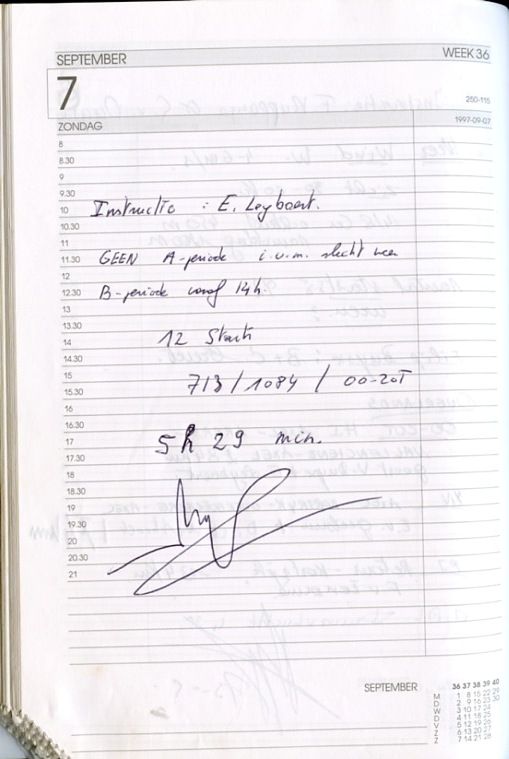 SEPTEMBER WEEK 36
7
250-115
ZONDAG 1997-09-07
8
8.30
9
9.30
10 Instructie : E. Leyboert.
10.30
11
11.30 GEEN A-periode i.v.m. slecht weer
12
12.30 B-periode vanaf 14h.
13
13.30
14 12 Starts
14.30
15 713/1084/00-20T
15.30
16
16.30
17 5h 29 min.
17.30
18
18.30
19
19.30
20
20.30
21
SEPTEMBER 36 37 38 39 40
M 1 8 15 22 29
D 2 9 16 23 30
W 3 10 17 24
D 4 11 18 25
V 5 12 19 26
Z 6 13 20 27
Z 7 14 21 28